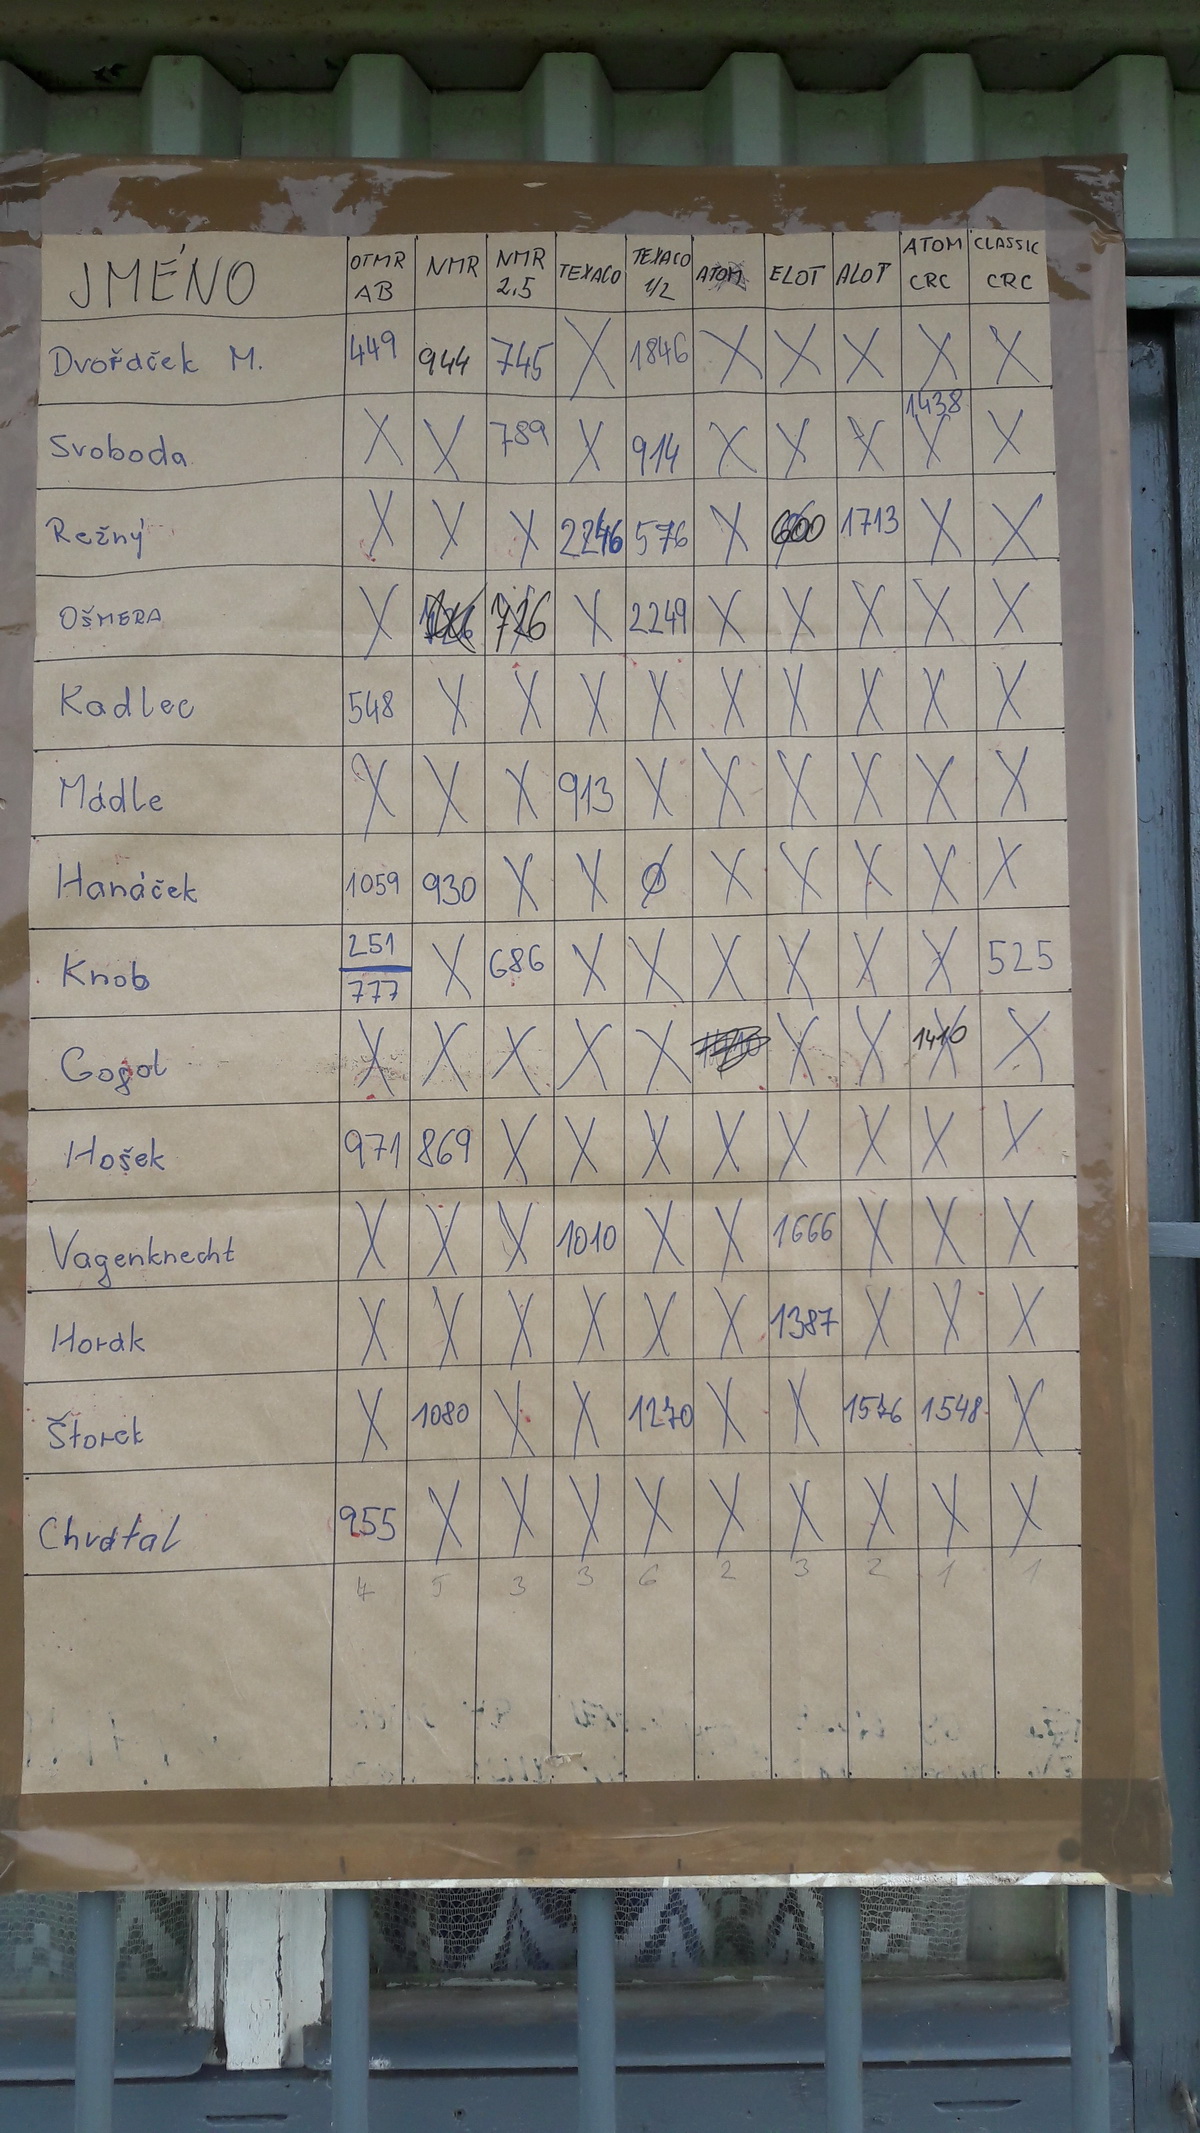 JMÉNO OTMR AB NMR NMR 2.5 TEXACO TEXACO 1/2 ATOM ELOT ALOT ATOM CRC CLASSIC CRC
Dvořáček M. 449 944 745 X 1846 X X X X X
Svoboda X X 789 X 914 X X X 1438 X X
Režný X X X 2246 576 X 600 1713 X X
OŠMERA X 726 X 2249 X X X X X
Kadlec 548 X X X X X X X X X
Mádle X X X 913 X X X X X X
Hanáček 1059 930 X X Ø X X X X X
Knob 251 777 X 686 X X X X X X 525
Gogol X X X X X X X 1410 X
Hošek 971 869 X X X X X X X X
Vagenknecht X X X 1010 X X 1666 X X X
Horák X X X X X X 1387 X X X
Štorek X 1080 X X 1270 X X 1576 1548 X
Chvátal 955 X X X X X X X X X
4 5 3 3 6 2 3 2 1 1